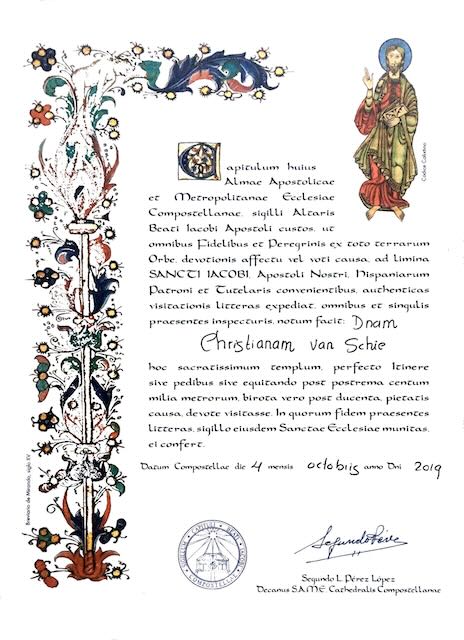 Capitulum huius
Almae Apostolicae
et Metropolitanae Ecclesiae
Compostellanae, sigilli Altaris
Beati Iacobi Apostoli custos, ut
omnibus Fidelibus et Peregrinis ex toto terrarum
Orbe, devotionis affectu vel voti causa, ad limina
SANCTI IACOBI, Apostoli Nostri, Hispaniarum
Patroni et Tutelaris convenientibus, authenticas
visitationis litteras expediat, omnibus et singulis
praesentes inspecturis, notum facit: Dnam
Christianam van Schie
hoc sacratissimum templum, perfecto Itinere
sive pedibus sive equitando post postrema centum
milia metrorum, birota vero post ducenta, pietatis
causa, devote visitasse. In quorum fidem praesentes
litteras, sigillo eiusdem Sanctae Ecclesiae munitas,
ei confert.
Datum Compostellae die 4 mensis octobris anno Dni 2019
Segundo L. Pérez López
Decanus S.A.M.E. Cathedralis Compostellanae
Codice Calixtino
Breviario de Miranda, siglo XV
SIGILLUM CAPITULI BEATI IACOBI
COMPOSTELLAE